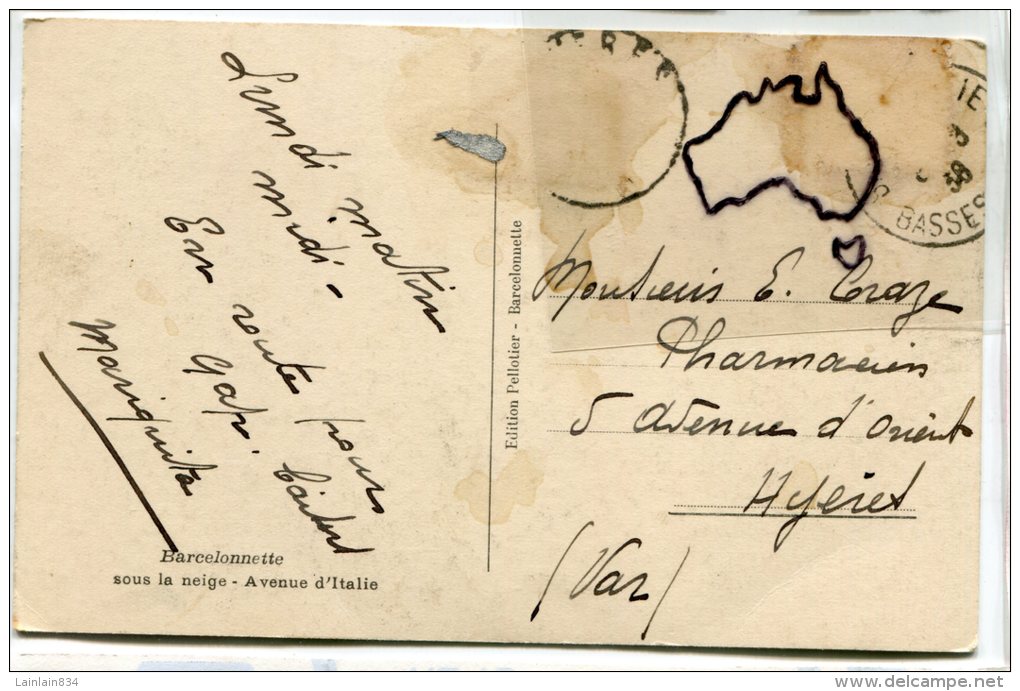 Lundi matin
midi -
En route pour
Gap.
Mariquita
Barcelonnette
sous la neige - Avenue d'Italie
Edition Pellotier - Barcelonnette
IE
BASSES
Monsieur E.
Pharmacien
5 Avenue d'Orient
Hyères
(Var)
Lainlain834